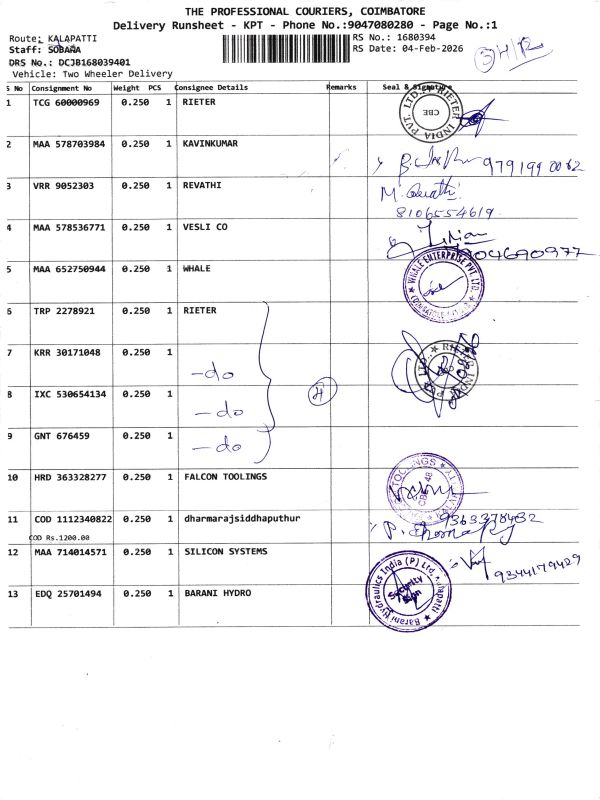 THE PROFESSIONAL COURIERS, COIMBATORE
Delivery Runsheet - KPT - Phone No.:9047080280 - Page No.:1
Route: KALAPATTI
RS No.: 1680394
Staff: SOBANA
RS Date: 04-Feb-2026
DRS No.: DCJB168039401
Vehicle: Two Wheeler Delivery
S No Consignment No Weight PCS Consignee Details Remarks Seal & Signature
1 TCG 60000969 0.250 1 RIETER
RIETER INDIA PVT. LTD. CBE
2 MAA 578703984 0.250 1 KAVINKUMAR
9791990062
3 VRR 9052303 0.250 1 REVATHI
M. Revathi
8106554619
4 MAA 578536771 0.250 1 VESLI CO
904690977
5 MAA 652750944 0.250 1 WHALE
WHALE ENTERPRISE PVT. LTD.
6 TRP 2278921 0.250 1 RIETER
7 KRR 30171048 0.250 1
-do
RIETER INDIA PVT. LTD.
8 IXC 530654134 0.250 1
-do
9 GNT 676459 0.250 1
-do
10 HRD 363328277 0.250 1 FALCON TOOLINGS
TOOLINGS
11 COD 1112340822 0.250 1 dharmarajsiddhaputhur
9363378432
COD Rs.1200.00
12 MAA 714014571 0.250 1 SILICON SYSTEMS
9344179429
13 EDQ 25701494 0.250 1 BARANI HYDRO
Barani Hydraulics India (P) Ltd. Kalapatti
Security